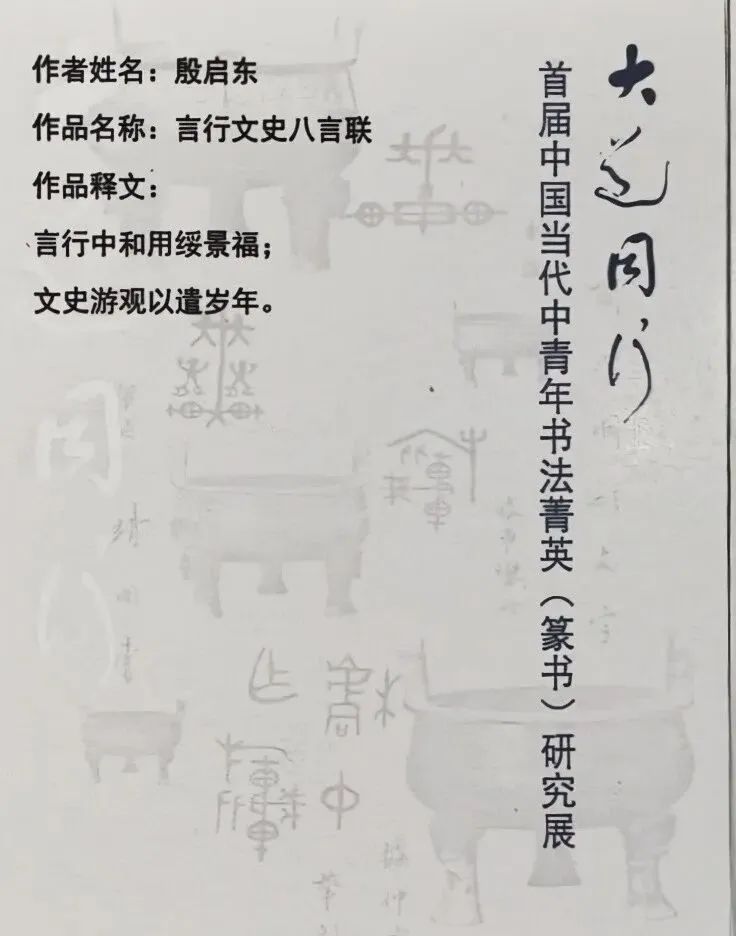 作者姓名：殷启东
作品名称：言行文史八言联
作品释文：
言行中和用绥景福；
文史游观以遣岁年。
大道同行
首届中国当代中青年书法菁英（篆书）研究展
同行
中